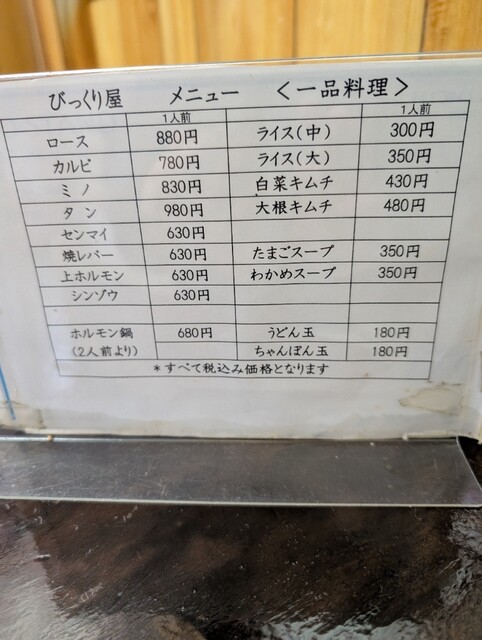 びっくり屋 メニュー <一品料理>
1人前 1人前
ロース 880円 ライス(中) 300円
カルビ 780円 ライス(大) 350円
ミノ 830円 白菜キムチ 430円
タン 980円 大根キムチ 480円
センマイ 630円
焼レバー 630円 たまごスープ 350円
上ホルモン 630円 わかめスープ 350円
シンゾウ 630円
ホルモン鍋 680円 うどん玉 180円
(2人前より) ちゃんぽん玉 180円
*すべて税込み価格となります